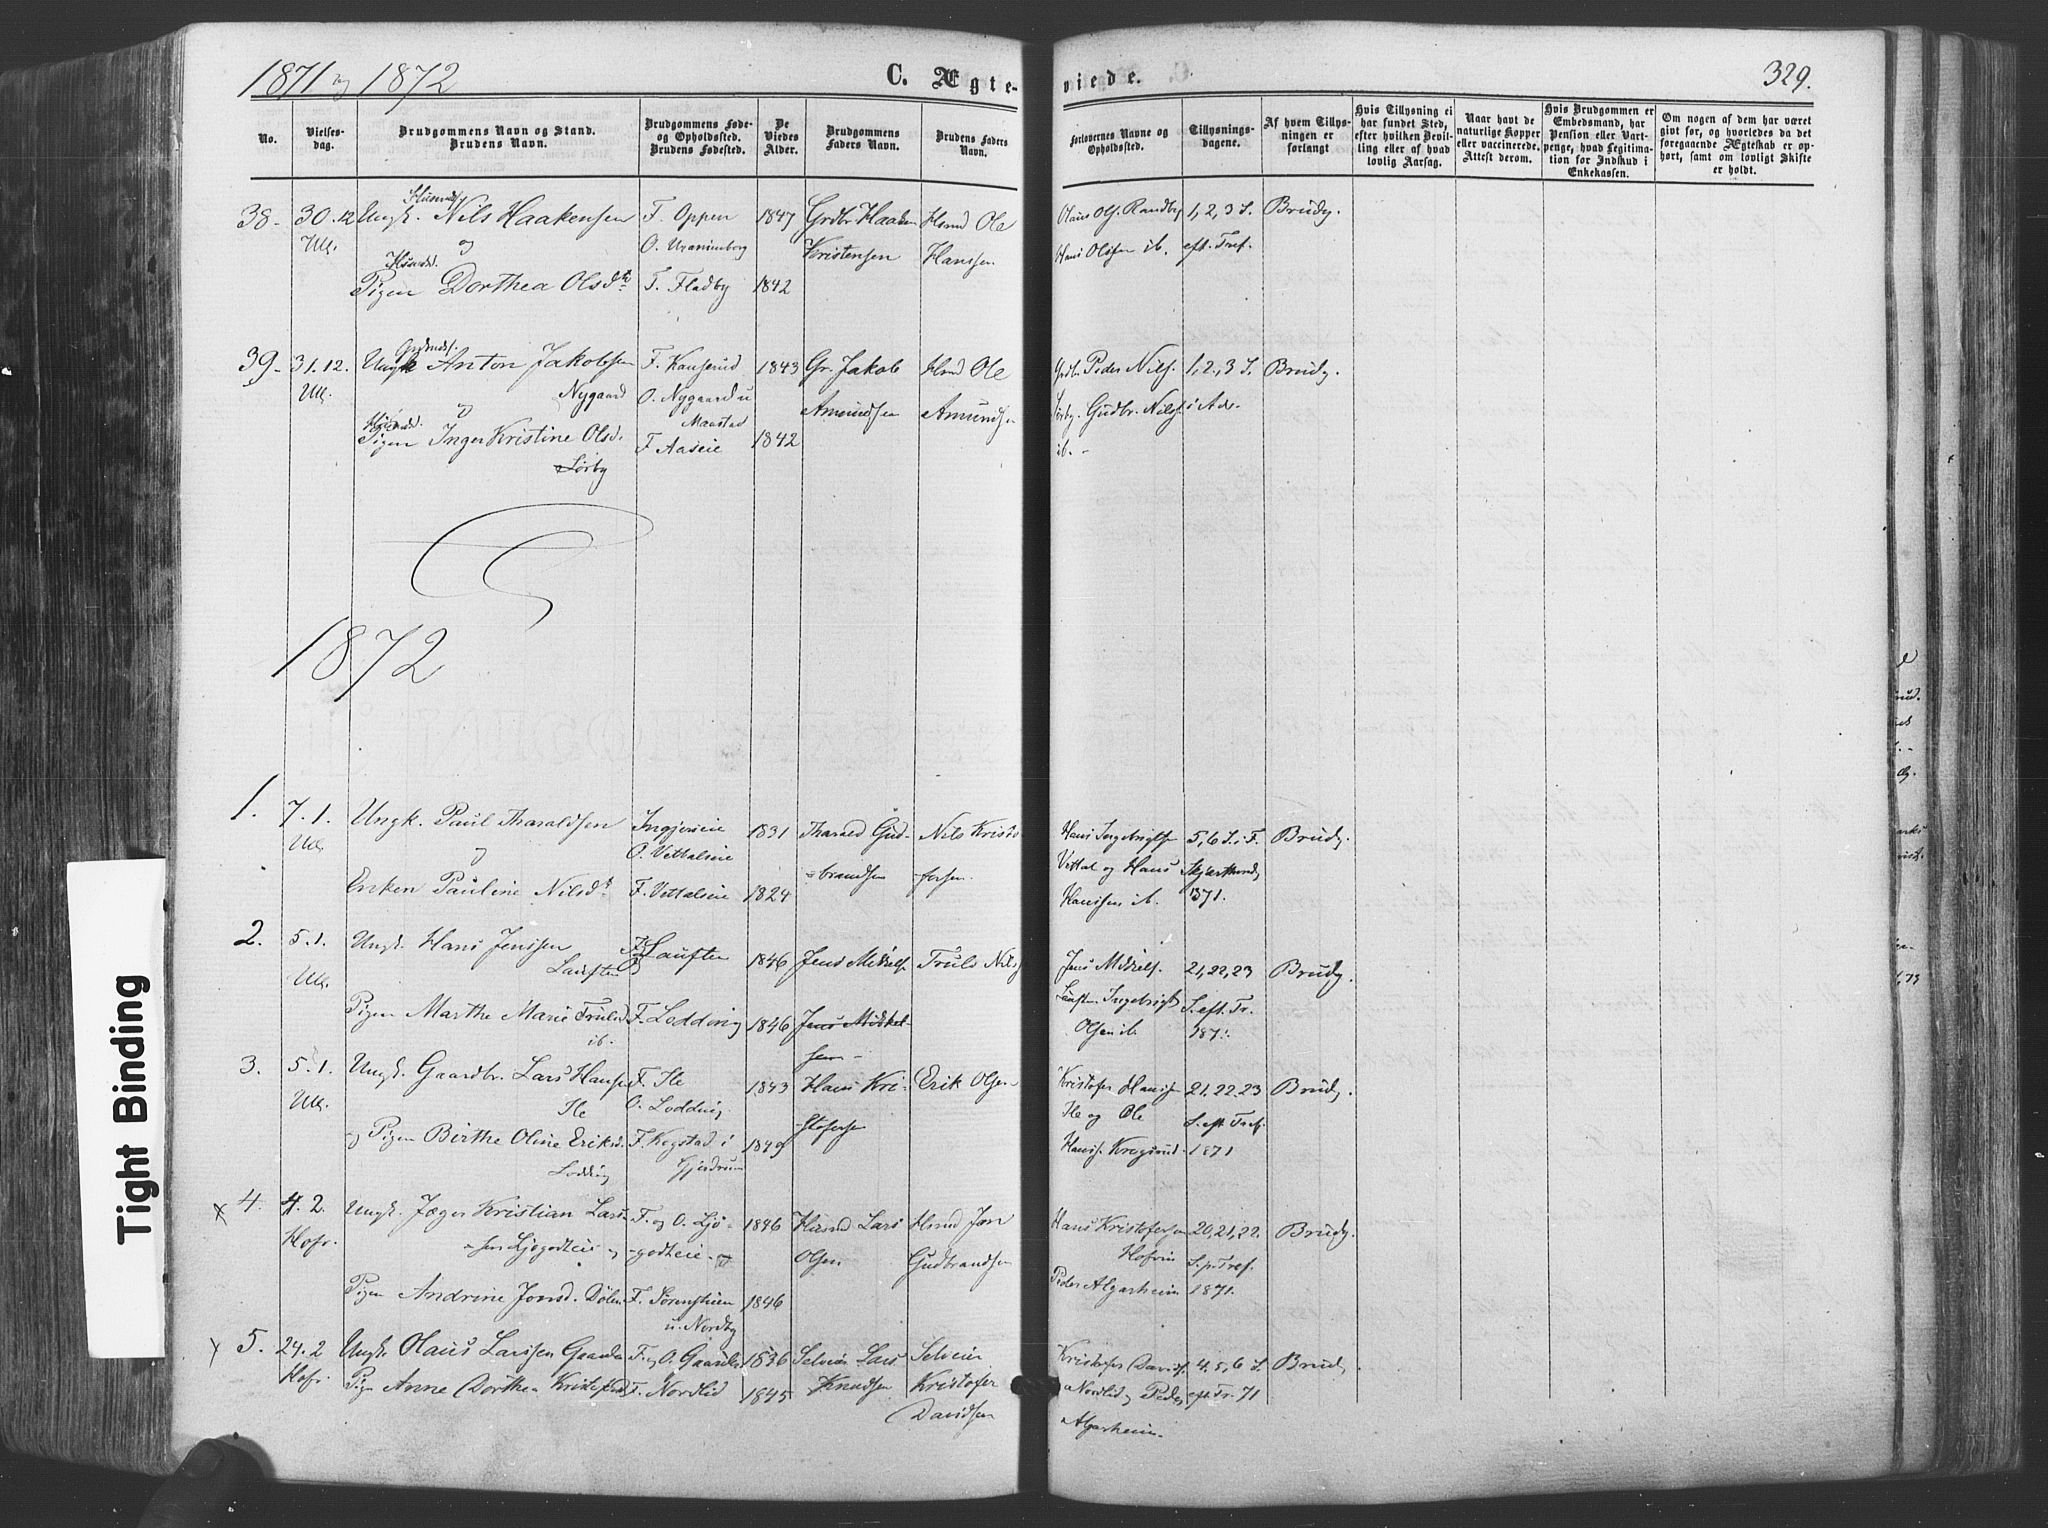 1871 og 1872
C. Ægte-
viede.
329.
No.
Vielses-
dag.
Brudgommens Navn og Stand.
Brudens Navn.
Brudgommens Føde-
og Opholdssted.
Brudens Fødested.
De
Viedes
Alder.
Brudgommens
Faders Navn.
Brudens Faders
Navn.
Forlovernes Navne og
Opholdssted.
Tillysnings-
dagene.
Af hvem Tillys-
ningen er
forlangt
Hvis Tillysning ei
har fundet Sted,
efter hvilken Bevil-
ling eller af hvad
lovlig Aarsag.
Naar havt de
naturlige Kopper
eller vaccinerede.
Attest derom.
Hvis Brudgommen er
Embedsmand, har
Pension eller Vart-
penge, hvad Legitima-
tion for Indskud i
Enkekassen.
Om nogen af dem har været
givt før, og hvorledes da det
foregaaende Ægteskab er op-
hørt, samt om lovligt Skifte
er holdt.
38.
30.12
Ull.
Ungk. Nils Haakensen
og
Pigen Dorthea Olsdtr
F. Oppen
O. Uranienborg
F. Fladby
1847
1842
Grdbr Haaken
Kristensen
Hsmd Ole
Hansen
Olaus Ols. Randby
Hans Olsen ib.
1, 2, 3 S.
eft. Tref.
Brudg.
39.
31.12.
Ull.
Ungk Anton Jakobsen
Nygaard
og
Pigen Inger Kristine Olsd.
Sørby
F. Kauserud
O. Nygaard u
Maastad
F. Aaseie
1843
1842
Gr. Jakob
Amundsen
Hsmd Ole
Amundsen
Grdbr Peder Nils.
Sørby. Gudbr. Nils.
ib.
1, 2, 3 S.
i Adv.
Brudg.
1872
1.
7.1.
Ull.
Ungk. Paul Tharaldsen
og
Enken Pauline Nilsdt.
Ingjerseie
O. Vettaleie
F. Vettaleie
1831
1824
Tharald Gud-
brandsen
Nils Kristo-
fersen.
Hans Ingebrigtsen
Vettal og Hans
Hansen ib.
5, 6 S. i F.
1871.
Brudg.
2.
5.1.
Ull.
Ungk. Hans Jensen
Lauften
Pigen Marthe Marie Trulsd
ib.
F. Lauften
F. Lodding
1846
1846
Jens Mikkels.
Jens Mikkel-
sen
Truls Nils
Jens Mikkels.
Lauften Ingebrigt
Olsen ib.
21, 22, 23
S. eft. Tr.
1871.
Brudg.
3.
5.1.
Ull.
Ungk. Gaardbr. Lars Hansen
Ile
og Pigen Birthe Oline Eriksd.
Lodding
F. Ile
O. Lodding.
F. Kogstad i
Gjerdrum
1843
1849
Hans Kri-
stofersen
Erik Olsen
Kristofer Hansen
Ile og Ole
Hans. Krogsrud
21. 22. 23
S. eft Tref.
1871
Brudg.
x 4.
4. 2.
Hofv.
Ungk. Jæger Kristian Lar-
sen Ljøgodteie og
Pigen Andrine Jonsd. Dølen
F. og O. Ljø-
godteie
F. Sørensteien
u. Nordby
1846
1846
Husmd Lars
Olsen
Hsmd Jon
Gudbrandsen
Hans Kristofersen
Hofvin
Peder Algarheim
20, 21, 22.
S. p. Tref.
1871.
Brudg.
x 5.
24.2
Hofv.
Ungk. Olaus Larsen Gaarder
Pige Anne Dorthea Kristofersd
F. og O. Gaarder
F. Nordlid
1836
1845
Selveier Lars
Knudsen
Selveier
Kristofer
Davidsen
Kristofer Davids.
Nordlid og Peder
Algarheim.
4. 5, 6 S.
ef. Tr. 71
Brudg.
Tight Binding